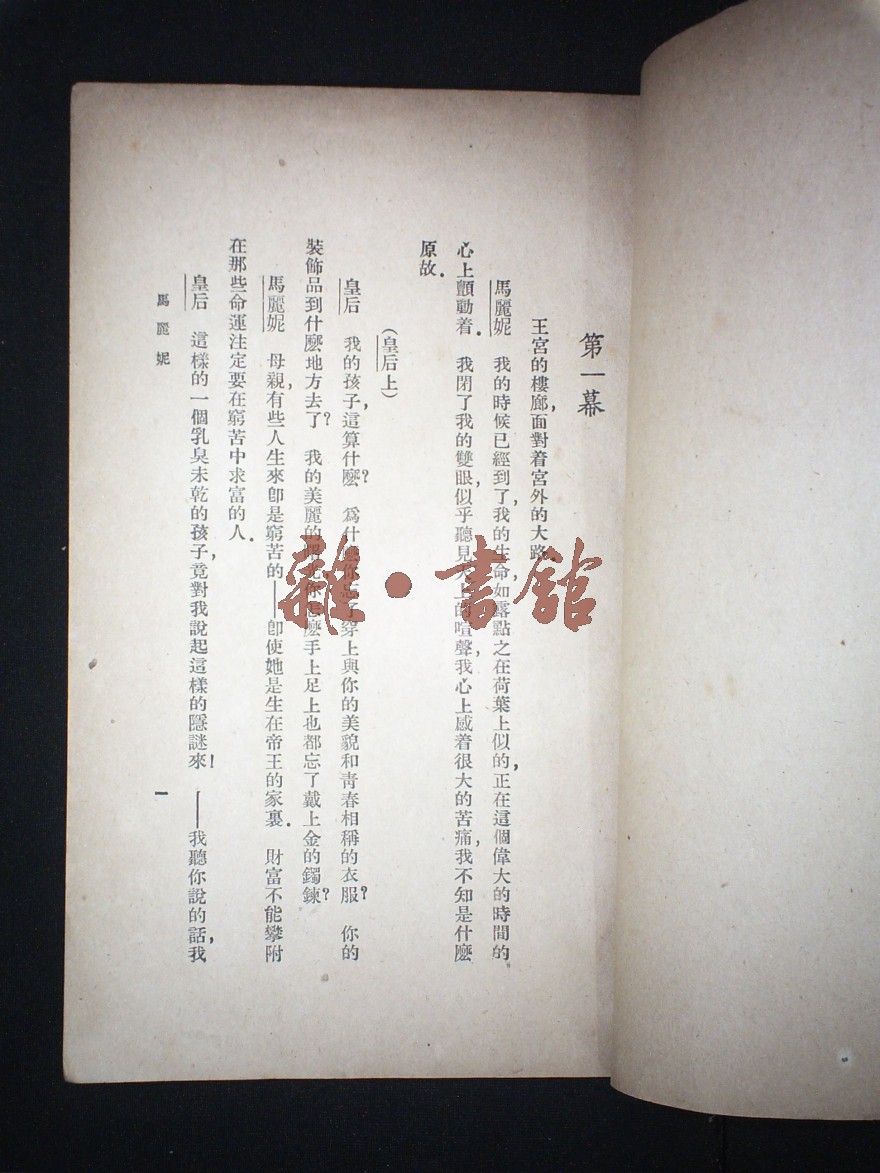 第一幕
王宮的樓廊，面對着宮外的大路．
馬麗妮　我的時候已經到了，我的生命，如露點之在荷葉上似的，正在這個偉大的時間的
心上顫動着．　我閉了我的雙眼，似乎聽見天上的喧聲，我心上感着很大的苦痛，我不知是什麼
原故．
（皇后上）
皇后　我的孩子，這算什麼？　爲什麼你忘了穿上與你的美貌和青春相稱的衣服？　你的
裝飾品到什麼地方去了？　我的美麗的你怎麼手上足上也都忘了戴上金的鐲鍊？
馬麗妮　母親，有些人生來卽是窮苦的——卽使她是生在帝王的家裏．　財富不能攀附
在那些命運注定要在窮苦中求富的人．
皇后　這樣的一個乳臭未乾的孩子，竟對我說起這樣的隱謎來！　——我聽你說的話，我
馬麗妮
一
雜・書館